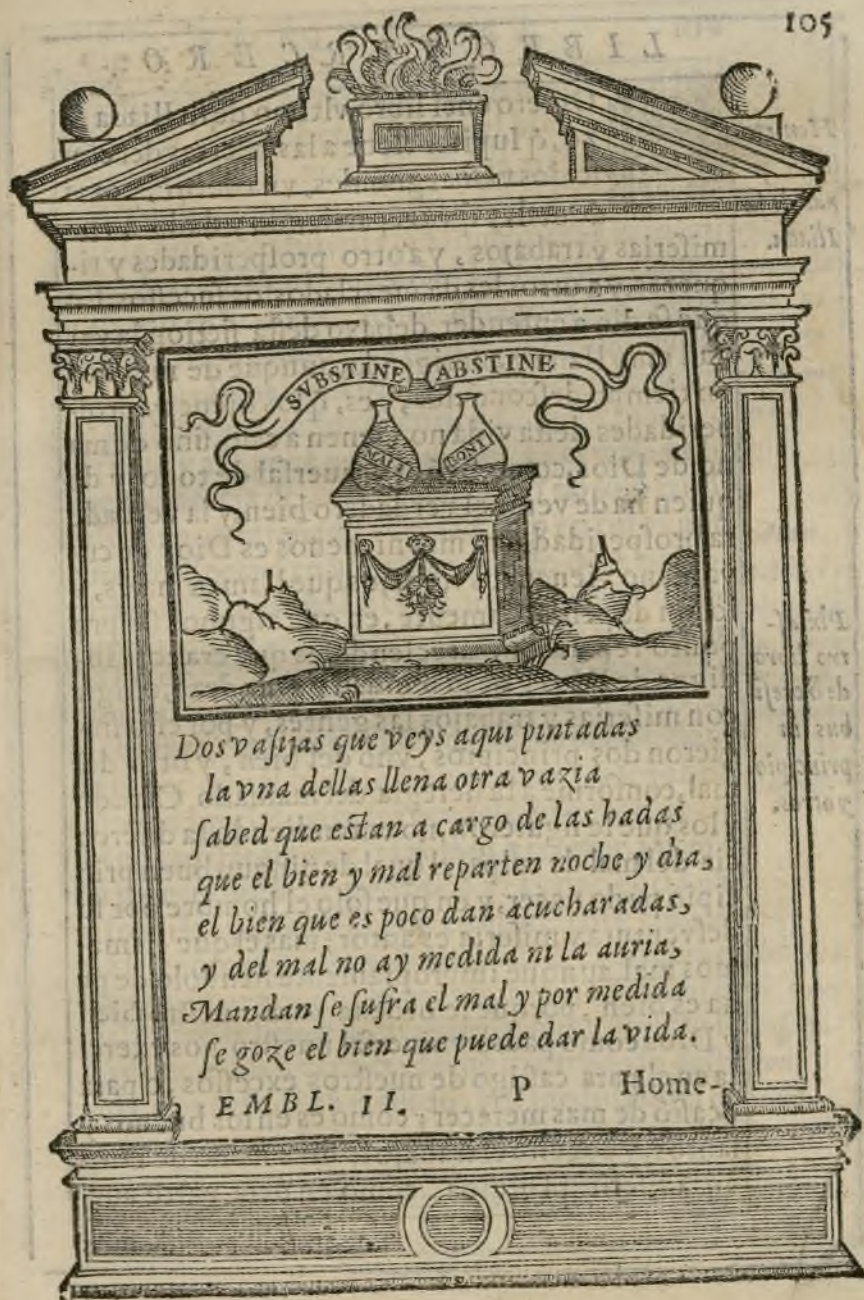 105
SVBSTINE ABSTINE
MALI BONI
Dos vasijas que veys aqui pintadas
la vna dellas llena otra vazia
sabed que estan a cargo de las hadas
que el bien y mal reparten noche y dia,
el bien que es poco dan acucharadas,
y del mal no ay medida ni la auria,
Mandan se sufra el mal y por medida
se goze el bien que puede dar la vida.
EMBL. II. P Home-